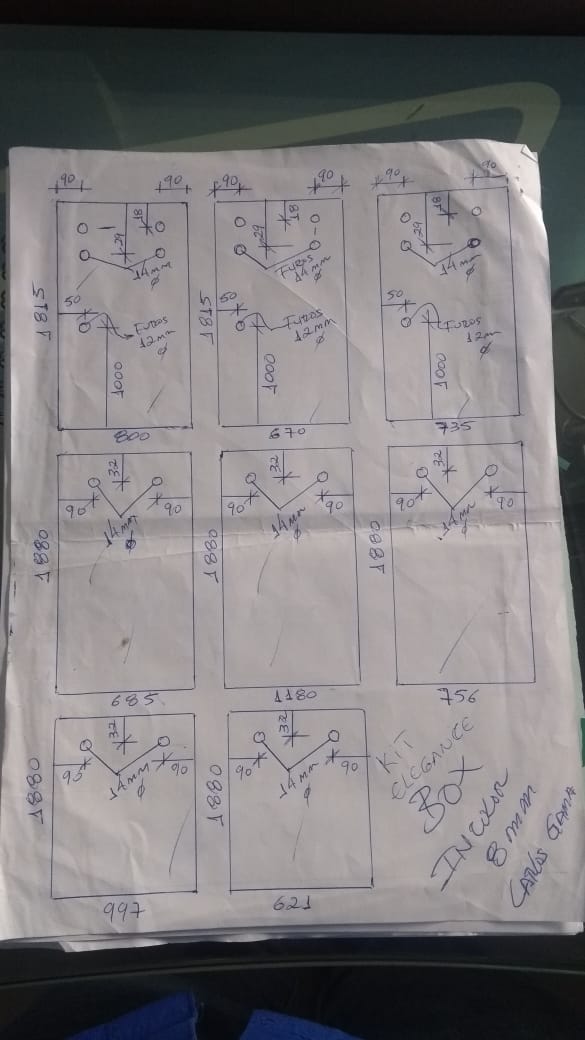 90 90 90 90 90 90
18 18 18
29 29 29
14mm Ø Furos 14mm Ø 14mm Ø
50 50 50
1815 1815
Furos 12mm Ø Furos 12mm Ø Furos 12mm Ø
1000 1000 1000
800 670 735
32 32 32
90 90 90 90 90 90
14mm Ø 14mm 14mm Ø
1880 1880 1880
685 1180 756
32 32
90 90 90 90
14mm Ø 14mm Ø
1880 1880
997 621
KIT
ELEGANCE
BOX
INCOLOR
8mm
CARLOS GAMA